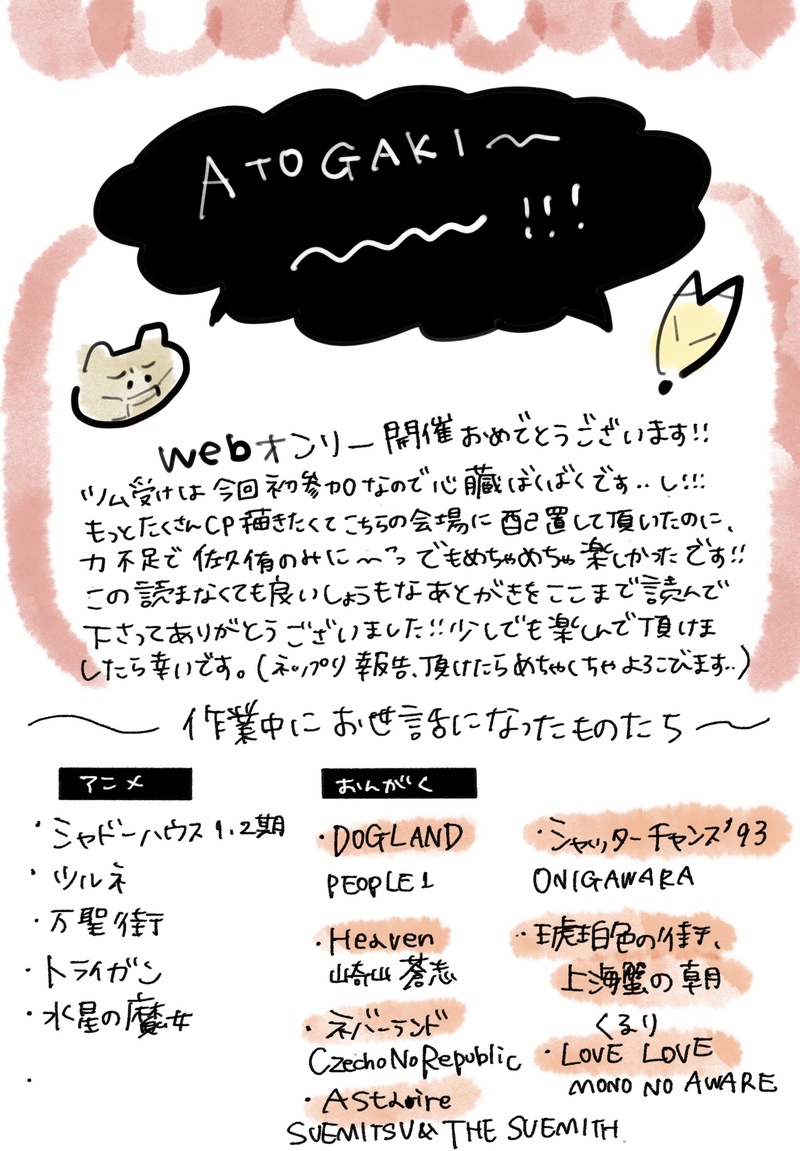 ATOGAKI〜
〜〜〜!!!
webオンリー開催おめでとうございます!!
ツム受けは今回初参加なので心臓ばくばくです..し!!!
もっとたくさんCP描きたくてこちらの会場に配置して頂いたのに、
力不足で佐久侑のみに〜っ でもめちゃめちゃ楽しかったです!!
この読まなくても良いしょうもなあとがきをここまで読んで
下さってありがとうございました!!少しでも楽しんで頂けま
したら幸いです。(ネップリ報告、頂けたらめちゃくちゃよろこびます..)
〜作業中にお世話になったものたち〜
アニメ
・シャドーハウス1.2期
・ツルネ
・万聖街
・トライガン
・水星の魔女
・
おんがく
・DOGLAND
PEOPLE1
・Heaven
山崎山蒼志
・ネバーランド
CzechoNoRepublic
・AStaire
SUEMITSU& THE SUEMITH
・シャッターチャンス'93
ONIGAWARA
・琥珀色の街、
上海蟹の朝
くるり
・LOVE LOVE
MONO NO AWARE